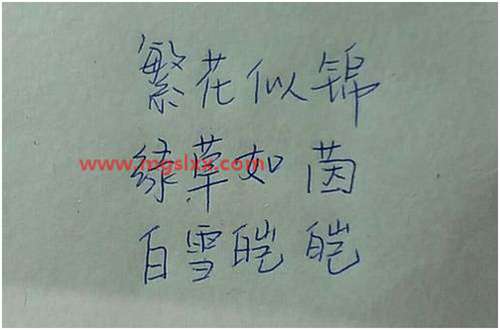 繁花似锦
绿草如茵
www.mgslxx.com
白雪皑皑